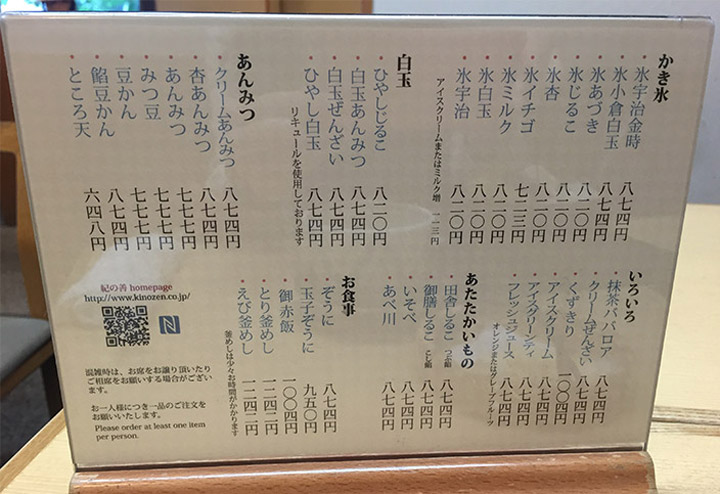 かき氷
氷宇治金時 八七四円
氷小倉白玉 八七四円
氷あづき 八二〇円
氷じるこ 八二〇円
氷杏 八二〇円
氷イチゴ 七二三円
氷ミルク 八二〇円
氷白玉 八二〇円
氷宇治 八二〇円
アイスクリームまたはミルク増 一一三円
白玉
ひやしじるこ 八二〇円
白玉あんみつ 八七四円
白玉ぜんざい 八七四円
ひやし白玉 八七四円
リキュールを使用しております
あんみつ
クリームあんみつ 八七四円
杏あんみつ 八七四円
あんみつ 七七七円
みつ豆 七七七円
豆かん 七七七円
餡豆かん 八七四円
ところ天 六四八円
いろいろ
抹茶ババロア 八七四円
クリームぜんざい 八七四円
くずきり 一〇〇四円
アイスクリーム 八七四円
アイスクリンティ 八七四円
フレッシュジュース 八七四円
オレンジまたはグレープフルーツ
あたたかいもの
田舎しるこ つぶ餡 八七四円
御膳しるこ こし餡 八七四円
いそべ 八七四円
あべ川 八七四円
お食事
ぞうに 八七四円
玉子ぞうに 九五〇円
御赤飯 一〇〇四円
とり釜めし 一二四二円
えび釜めし 一二四二円
釜めしは少々お時間がかかります
紀の善 homepage
http://www.kinozen.co.jp/
混雑時は、お席をお譲り頂いたり
ご相席をお願いする場合がござい
ます。
お一人様につき一品のご注文を
お願いいたします。
Please order at least one item
per person.